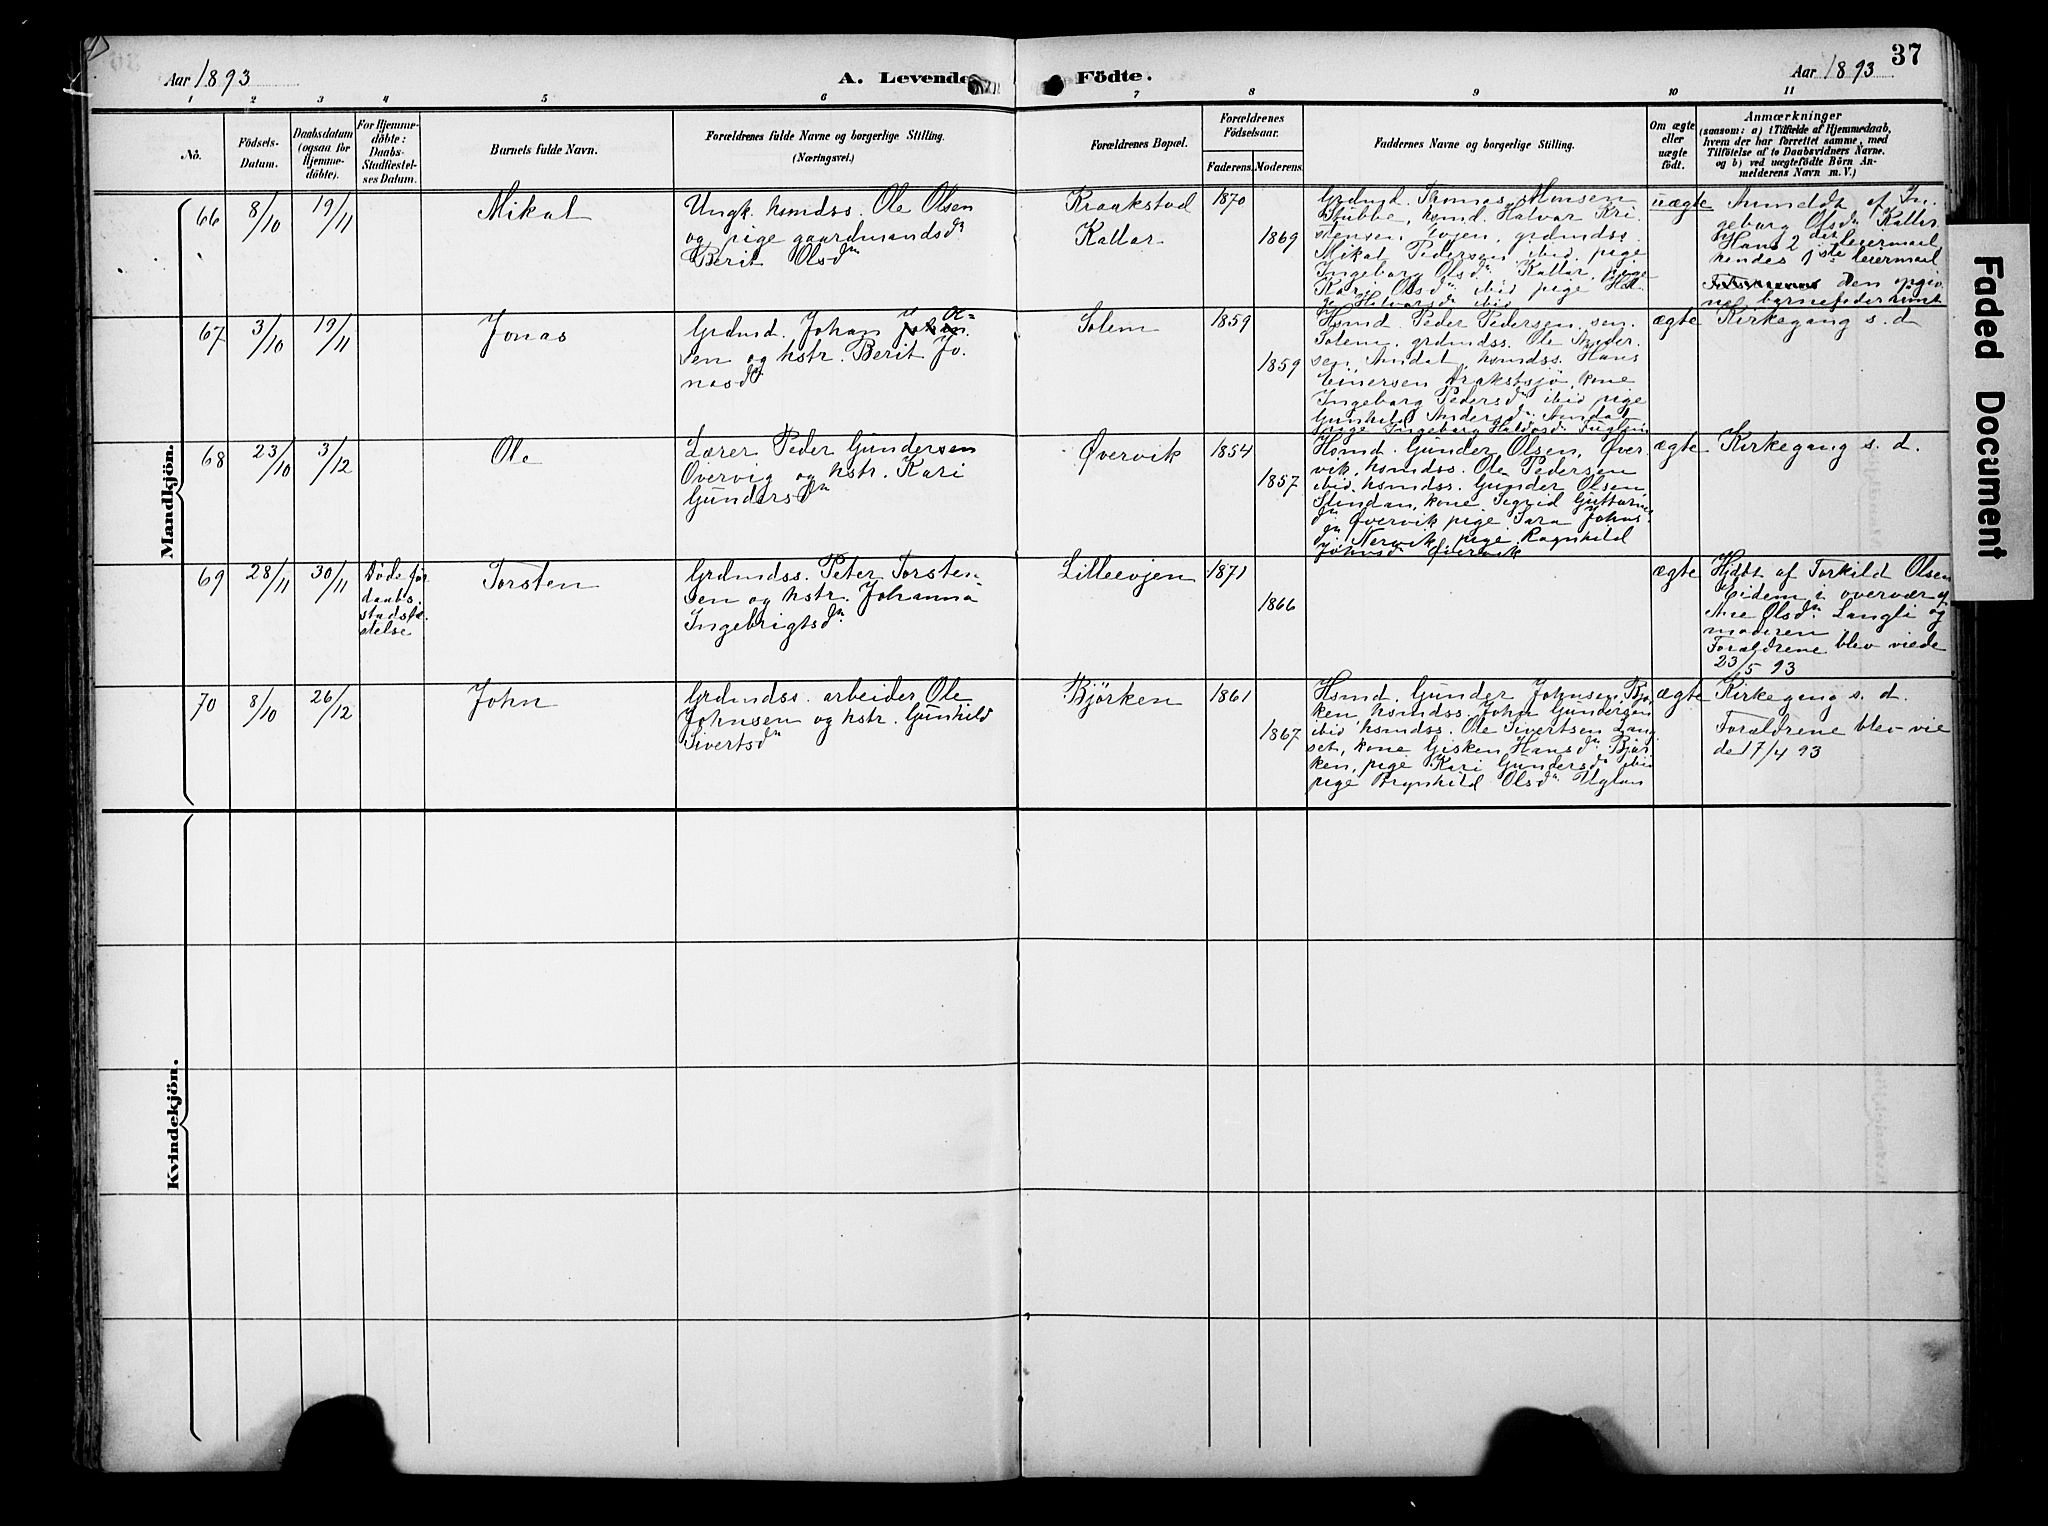 37
Aar 1893
A. Levende Födte.
Aar 1893
1 2 3 4 5 6 7 8 9 10 11
Nô.
Födsels-
Datum.
Daabsdatum
(ogsaa for
Hjemme-
döbte).
For Hjemme-
döbte:
Daabs-
Stadfæstel-
ses Datum.
Barnets fulde Navn.
Forældrenes fulde Navne og borgerlige Stilling.
(Næringsvei.)
Forældrenes Bopæl.
Forældrenes
Födselsaar.
Faderens. Moderens.
Faddernes Navne og borgerlige Stilling.
Om ægte
eller
uægte
födt.
Anmærkninger
(saasom: a) i Tilfælde af Hjemmedaab,
hvem der har forrettet samme, med
Tilföielse af to Daabsvidners Navne,
og b) ved uægtefödte Börn An-
melderens Navn m. V.)
Mandkjön.
66
8/10
19/11
Mikal
Ungk. hsmdss. Ole Olsen
og pige gaardmandsdr
Berit Olsdr
Kraakstad
Kallar
1870
1869
Grdmd. Thomas Monsen
Stubbe, hsmd. Halvar Kri
stensen Evjen, grdmdss.
Mikal Pedersen ibid. pige
Ingeborg Olsdr Kallar, pige
Kari Olsdr ibid pige Hal
Halvarsdr ibid
uægte
Anmeldt af In-
geborg Olsdr Kallar.
Hans 2det leiermaal
hendes 1ste leiermaal
den opgiv
ne barnefader
67
3/10
19/11
Jonas
Grdmd. Johan
sen og hstr. Berit Jo-
nasdr
Solem
1859
1859
Hsmd. Peder Pedersen sen.
Solem, grdmdss. Ole Ander
sen, Aundal hsmdss. Hans
Einersen kone
Ingeborg Pedersdr ibid pige
Gunhild Andersdr Aundal
pige Ingeborg
ægte
Kirkegang s. d
68
23/10
3/12
Ole
Lærer Peder Gundersen
Overvig og hstr. Kari
Gundersdr
Øvervik
1854
1857
Hsmd. Gunder Olsen, Øver
vik, hsmdss. Ole Pedersen
ibid, hsmdss. Gunder Olsen
Slindan, kone Sigrid
dr Øvervik pige Sara Johns
dr Nervik, pige Ragnhild
Johnsdr Øvervik
ægte
Kirkegang s. d.
69
28/11
30/11
Döde för
daabs.
stadsfæ
stelse
Torsten
Grdmdss. Peter Torsten-
sen og hstr. Johanna
Ingebrigtsdr
Lilleevjen
1871
1866
ægte
Hjdbt af Torkild Olsen
Eidem i overvær af
Ane Olsdr Langli og
moderen
Forældrene blev viede
23/5 93
70
8/10
26/12
John
Grdmdss. arbeider Ole
Johnsen og hstr. Gunhild
Sivertsdr
Björken
1861
1867
Hsmd. Gunder Johnsen Bjør
ken, hsmdss. John Gundersen
ibid hsmdss. Ole Sivertsen Lang
set, kone Gisken Hansdr Bjør
ken, pige Kari Gundersdr ibid
pige Brynhild Olsdr Uglan
ægte
Kirkegang s. d.
Forældrene blev vie
de 17/4 93
Kvindekjön.
Faded Document